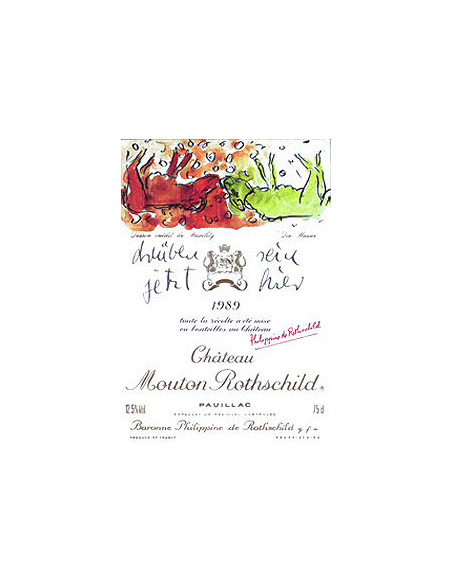 Dessin inédit de Baselitz Die Mauer
drüben sein
jetzt hier
1989
toute la récolte a été mise
en bouteilles au Château
Philippine de Rothschild
Château
Mouton Rothschild
PAUILLAC
12.5% Vol. 75 cl
APPELLATION PAUILLAC CONTROLÉE
Baronne Philippine de Rothschild g.f.a.
PRODUCE OF FRANCE